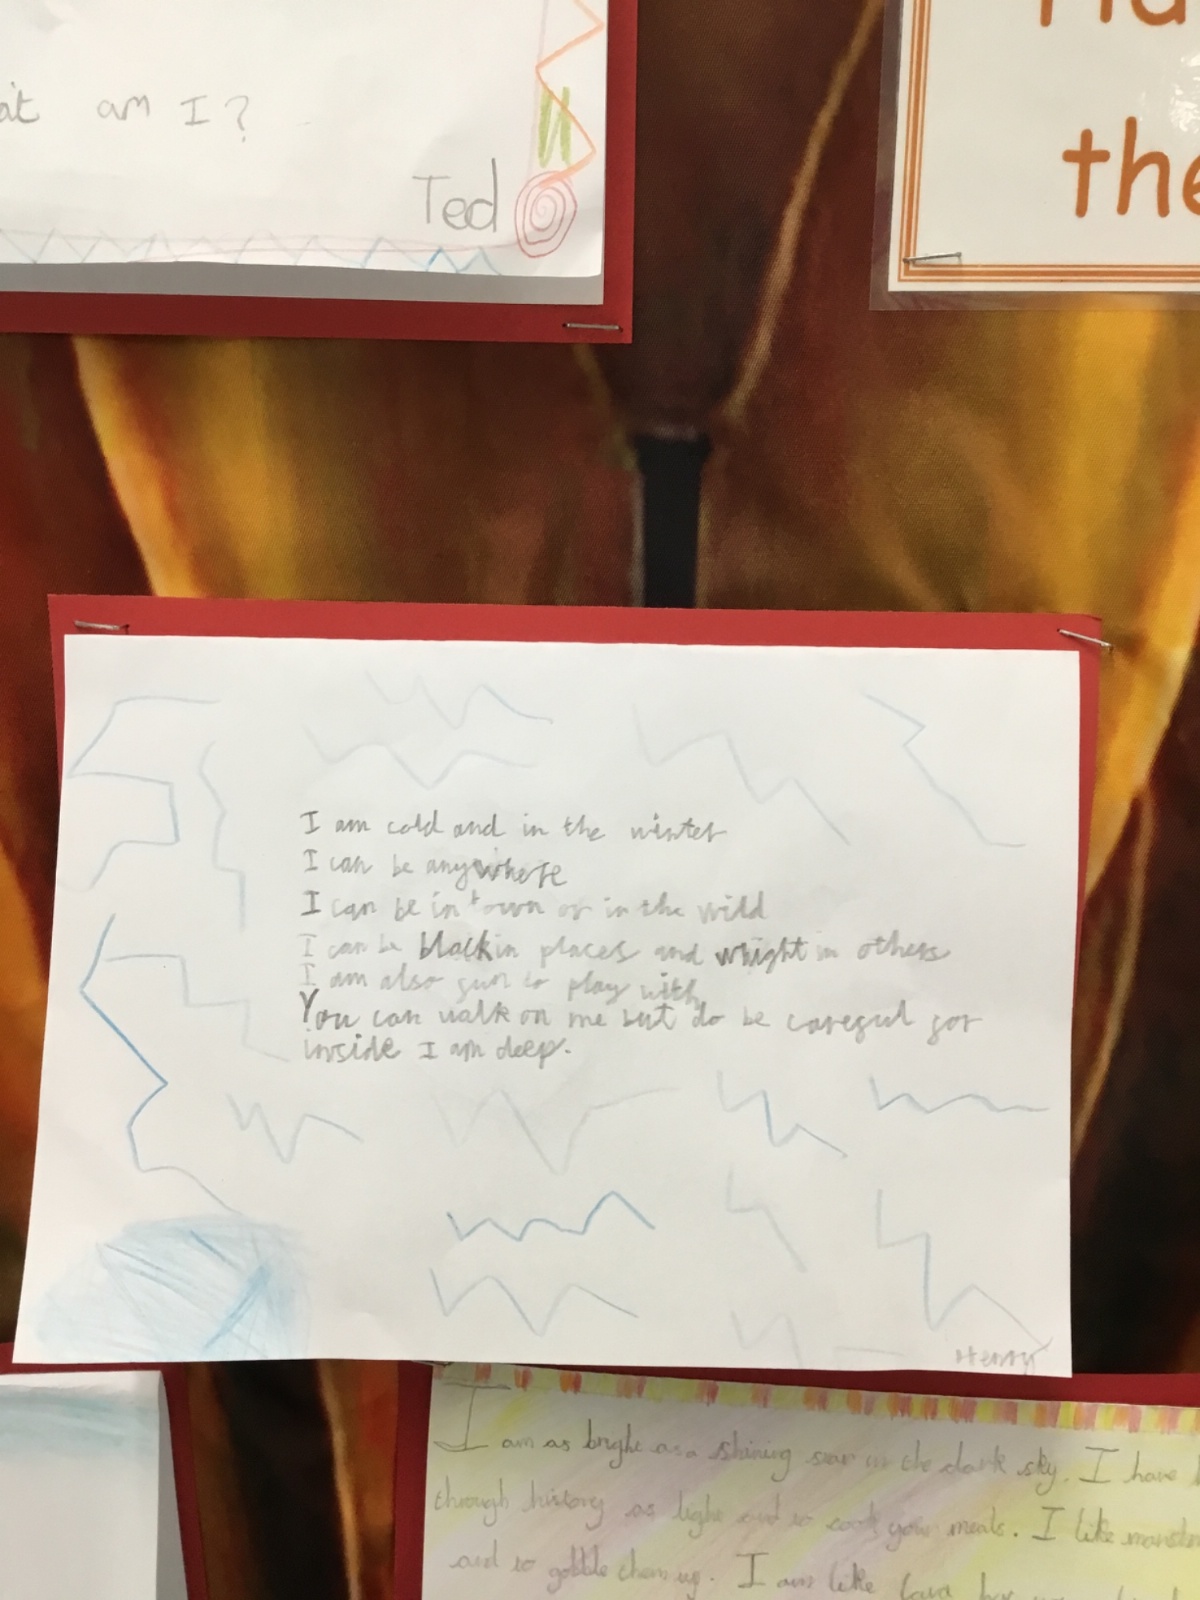 am I?
Ted
the
I am cold and in the winter
I can be anywhere
I can be in town or in the wild
I can be black in places and whight in others
I am also fun to play with
You can walk on me but do be careful for
inside I am deep.
Henry
I am as bright as a shining star in the dark sky. I have
through history as light and to cook your meals. I like
and to gobble them up. I am like lava